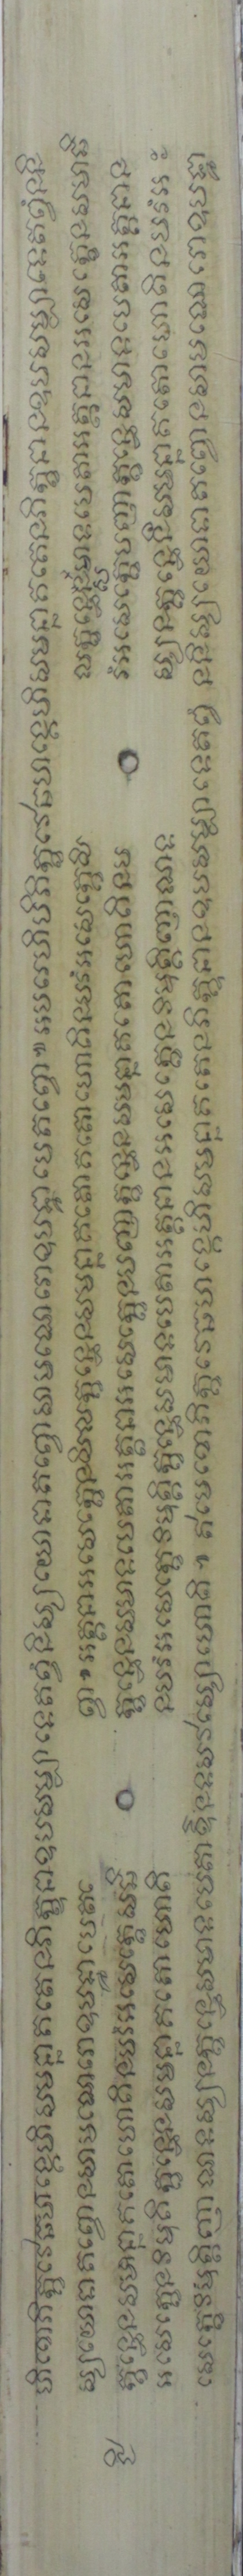 ហិខោភិក្ខវេឆហង្គេហិសមន្នាគតេនភិក្ខុនាឧបសម្បាទេតព្វំនិស្សយោទាតព្វោសាមណេរោឧបដ្ឋាបេតព្វោ៕អបរេហិបិភិក្ខវេឆហង្គេហិសមន្នាគតេនភិក្ខុនានឧបសម្បាទេតព្វំននិ
ស្សយោទាតព្វោនសាមណេរោឧបដ្ឋាបេតព្វោ៕អត្តនាអសេក្ខេនសីលក្ខន្ធេនសមន្នាគតោហោតិនបរំអសេក្ខេសីលក្ខន្ធេសមាទបេតាអត្តនានអសេក្ខេនសមាធិ
ក្ខន្ធេនសមន្នាគតោហោតិនបរំអសេក្ខេសមាធិក្ខន្ធេនសមាទបេតាអត្តនាអសេក្ខេនបញ្ញាក្ខន្ធេនសមន្នាគតោហោតិនបរំអសេក្ខេបញ្ញាក្ខន្ធេសមាទបេតាអត្តនាន
អសេក្ខេនវិមុតិក្ខន្ធេនសមន្នាគតោហោតិនបរំអសេក្ខេវិមុត្តិក្ខន្ធេសមាទបេតាអត្តនានអសេក្ខេនវិមុត្តិញាណទស្សនក្ខន្ធេនសមន្នាគតោហោតិនបរំអ
សេក្ខេវិមុត្តិញាណទស្សនក្ខន្ធេសមាទបេតាឩនទសវស្សោហោតិ៕ឥមេហិខោភិក្ខវេឆហង្គេហិសមន្នាគតេនភិក្ខុនានឧបសម្បាទេតព្វំននិស្សយោទាតព្វោនសាមណេរោឧបដ្ឋា